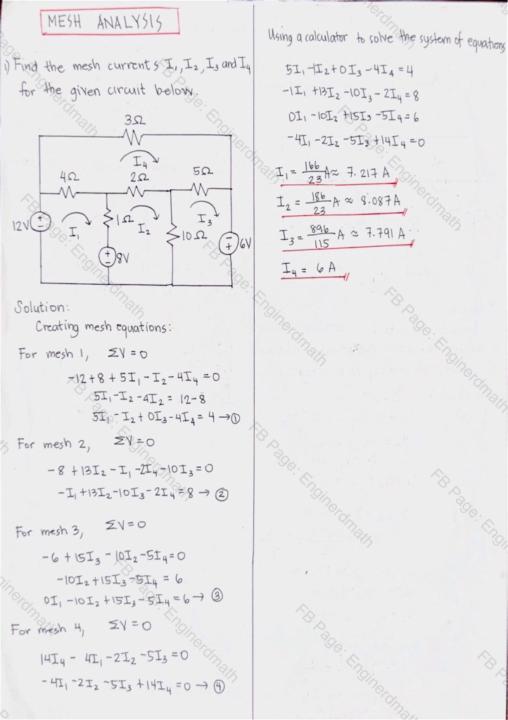 MESH ANALYSIS
1) Find the mesh currents I₁, I₂, I₃ and I₄
for the given circuit below.
3Ω
I₄
4Ω
2Ω
5Ω
12V
I₁
1Ω
I₂
10Ω
I₃
6V
8V
Solution:
Creating mesh equations:
For mesh 1, ΣV = 0
-12 + 8 + 5I₁ - I₂ - 4I₄ = 0
5I₁ - I₂ - 4I₄ = 12 - 8
5I₁ - I₂ + 0I₃ - 4I₄ = 4 → ①
For mesh 2, ΣV = 0
-8 + 13I₂ - I₁ - 2I₄ - 10I₃ = 0
-I₁ + 13I₂ - 10I₃ - 2I₄ = 8 → ②
For mesh 3, ΣV = 0
-6 + 15I₃ - 10I₂ - 5I₄ = 0
-10I₂ + 15I₃ - 5I₄ = 6
0I₁ - 10I₂ + 15I₃ - 5I₄ = 6 → ③
For mesh 4, ΣV = 0
14I₄ - 4I₁ - 2I₂ - 5I₃ = 0
-4I₁ - 2I₂ - 5I₃ + 14I₄ = 0 → ④
Using a calculator to solve the system of equations
5I₁ - 1I₂ + 0I₃ - 4I₄ = 4
-1I₁ + 13I₂ - 10I₃ - 2I₄ = 8
0I₁ - 10I₂ + 15I₃ - 5I₄ = 6
-4I₁ - 2I₂ - 5I₃ + 14I₄ = 0
I₁ = 166/23 A ≈ 7.217 A
I₂ = 186/23 A ≈ 8.087 A
I₃ = 896/115 A ≈ 7.791 A
I₄ = 6 A
FB Page: Enginerdmath
FB Page: Enginerdmath
FB Page: Enginerdmath
FB Page: Enginerdmath
FB Page: Enginerdmath
FB Page: Enginerdmath